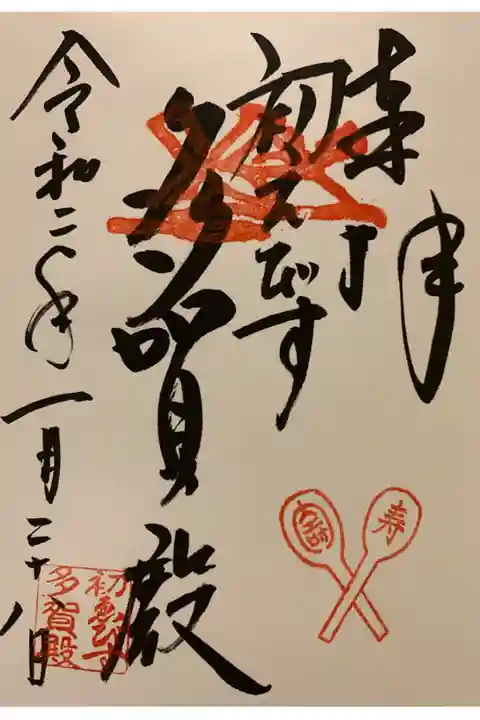 奉拝
初ゑびす
多賀殿
令和二年一月二十八日
寿
初ゑびす
多賀殿